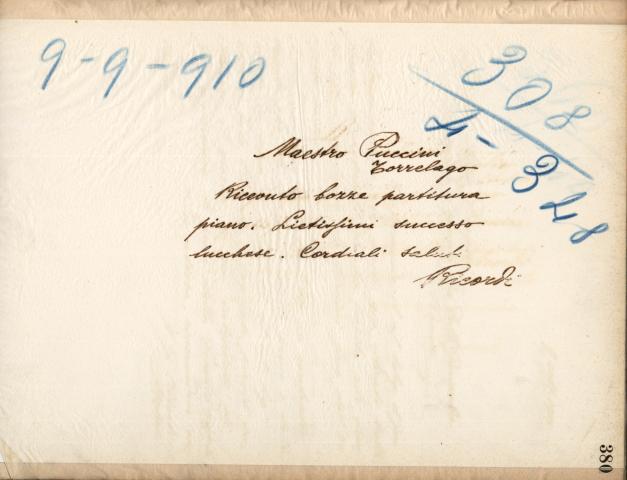 9-9-910
308
4-328
Maestro Puccini
Torrelago
Ricevuto bozze partitura
piano. Lietissimi successo
lucchese. Cordiali saluti
Ricordi
380